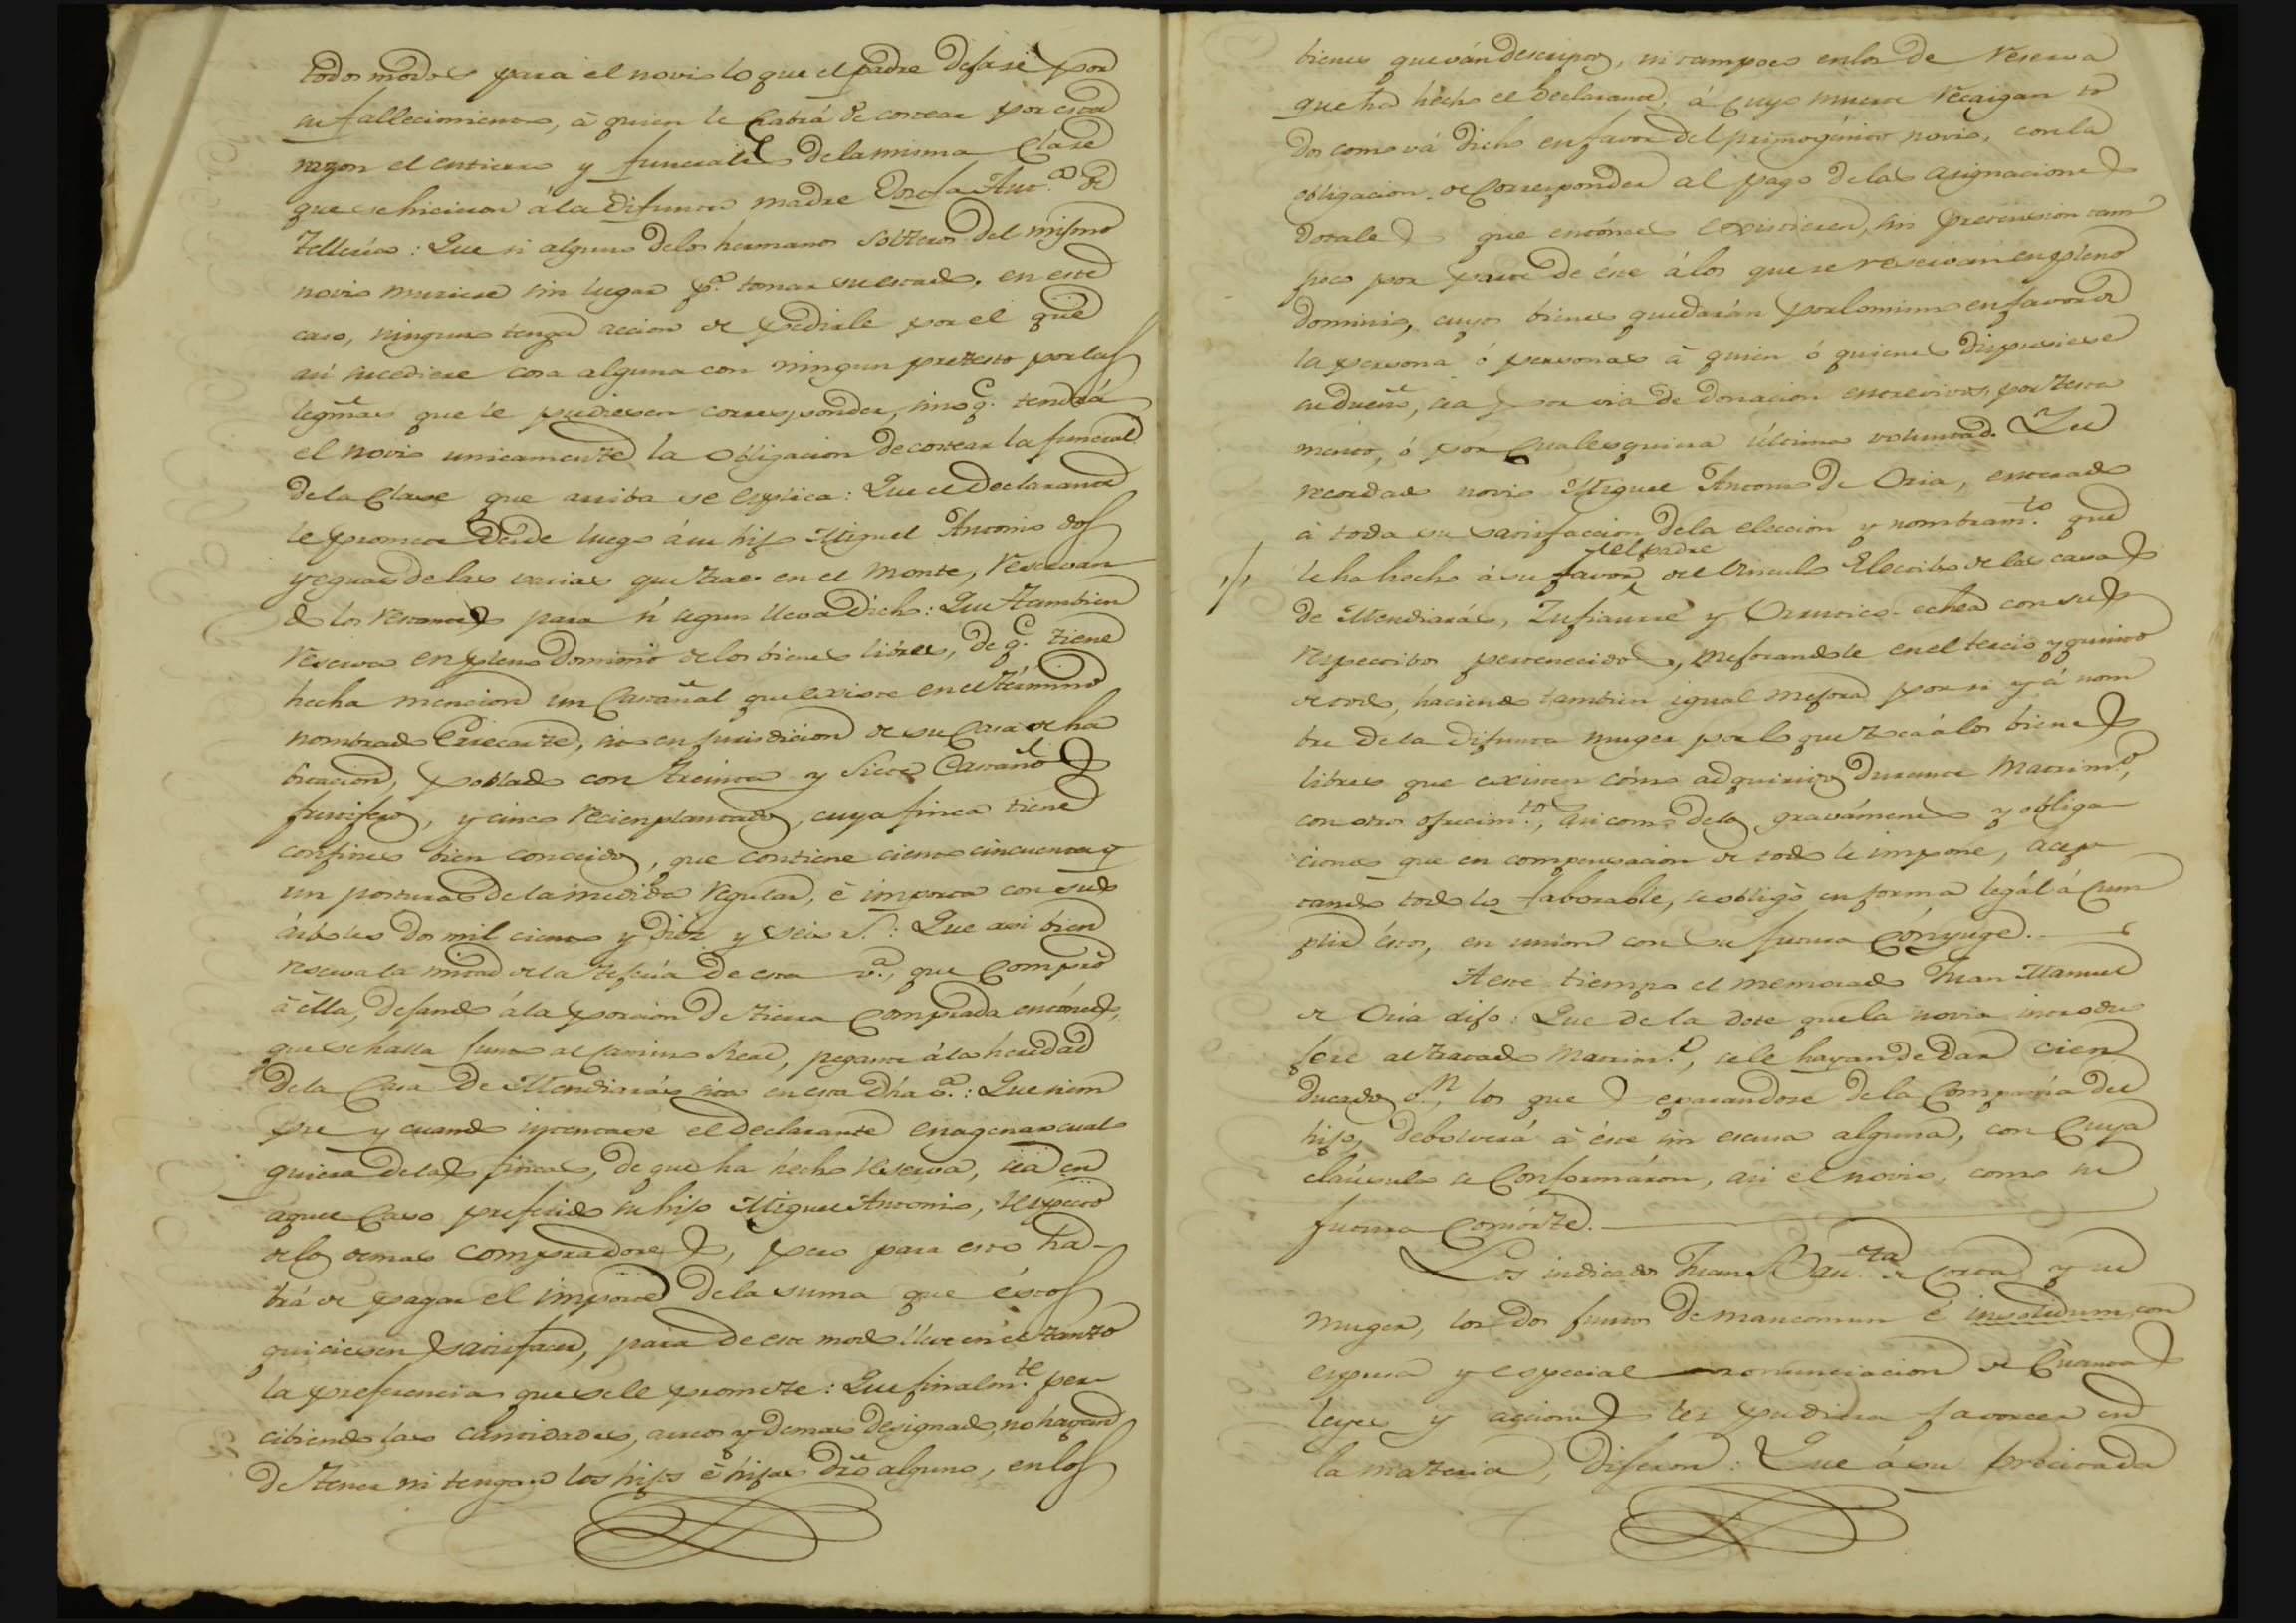 todos modos para el novio lo que el padre dejase por
su fallecimiento, á quien le habrá de costear por esta
razon el entierro y funerales de la misma clase
que se hicieron á la difunta madre Josefa Ant.ª de
Telleria: Que si alguno de los hermanos solteros del mismo
novio muriese sin lugar p.ª tomar su estado, en este
caso, ninguno tenga accion de pedirle por el que
asi sucediere cosa alguna con ningun pretesto por las
legmas que le pudiesen corresponder, sino q.e tendrá
el novio unicamente la obligacion de costear la funeral
de la clase que arriba se esplica: Que el declarante
le promete desde luego á su hijo Miguel Antonio dos
yeguas de las varias que trae en el monte, reservan
do los restantes para si segun lleva dicho: Que tambien
reserva en pleno dominio de los bienes libres, de q.e tiene
hecha mencion un castañal que existe en el término
nombrado sito en jurisdicion de su casa de ha
bitacion, poblado con treinta y siete castaños
frutiferos, y cinco recien plantados, cuya finca tiene
confines bien conocidos, que contiene ciento cincuenta y
un posturas de la medida regular, é importa con sus
árboles dos mil ciento y diez y seis r.s: Que asi bien
reserva la mitad de la tejeria de esta v.ª, que compró
á ella, dejando á la porcion de tierra comprada entónces,
que se halla junto al camino Real, pegante á la heredad
de la Casa de Mendiarás sita en esta dha v.ª: Que siem
pre y cuando intentase el declarante enagenar cual
quiera de las fincas, de que ha hecho reserva, sea en
aquel caso preferido su hijo Miguel Antonio, respecto
de los demas compradores, pero para esto ha-
brá de pagar el importe de la suma que éstos
quiciesen satisfacer, para de este modo lleve en el tanto
la preferencia que se le promete: Que finalm.te per
cibiendo las cantidades, arreos y demas designado, no hayan
de tener ni tengan los hijos é hijas dro alguno, en los
bienes que ván descriptos, ni tampoco en los de reserva
que ha hecho el declarante, á cuya muerte recaigan to
dos como vá dicho en favor del primogénito novio, con la
obligacion de corresponder al pago de las asignaciones
dotales que entónces existieren, sin pretension tam
poco por parte de éste á los que se reservan en pleno
dominio, cuyos bienes quedarán por lo mismo en favor de
la persona ó personas á quien ó quienes dispusiese
su dueño, sea por via de donacion entrevivos, por testa
mento, ó por cualesquiera última voluntad. Y el
recordado novio Miguel Antonio de Oria, enterado
á toda su satisfaccion de la eleccion y nombram.to que
/el padre
le ha hecho á su favor, del vinculo Electibo de las casas
de Mendiarás, Zufiaurre y con sus
respectibos pertenecidos, mejorandole en el tercio y quinto
de todo, haciendo tambien igual mejora por si y á nom
bre de la difunta muger por lo que toca á los bienes
libres que existen cómo adquiridos durante Matrim.o,
con otro ofrecim.to, asi como de los gravámenes y obliga
ciones que en compensacion de todo le impone, acep
tando todo lo faborable, se obligó en forma legál á cum
plir éstos, en union con su futura Cónyuge.
A este tiempo el memorado Juan Manuel
de Oria dijo: Que de la dote que la novia introdu
jere al tratado Matrim.o, se le hayan de dar cien
ducados v.n, los que separandose de la compañia del
hijo, debolverá á éste sin escusa alguna, con cuya
cláusula se conformáron, asi el novio, como su
futura consorte.
Los indicados Juan Bau.ta de Corta y su
muger, los dos juntos de mancomun é insolidum, con
espresa y especial renunciacion de cuantas
leyes y acciones les pudiera favorecer en
la materia, dijeron: Que á su precitada